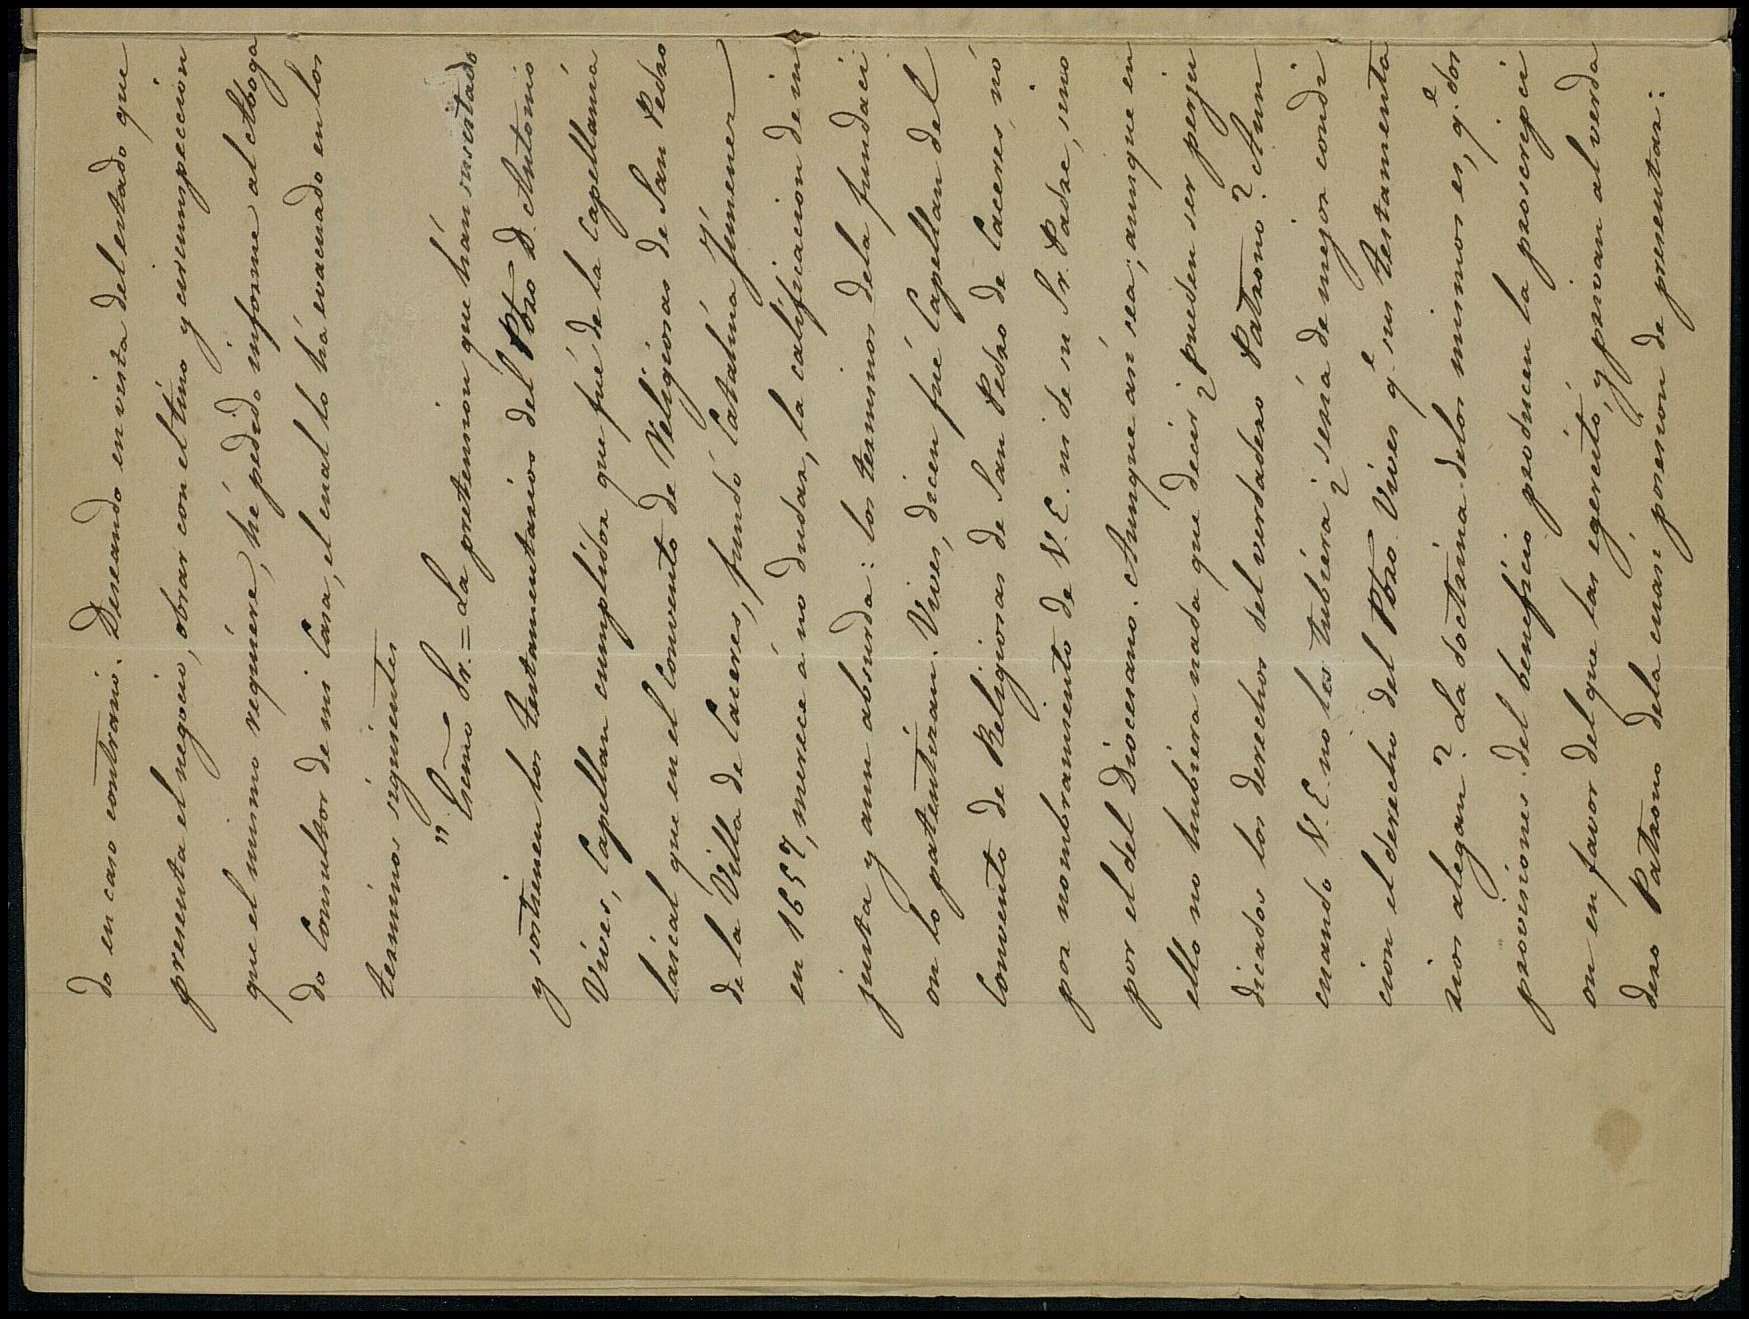 do en caso contrario. Deseando en vista del estado que
presenta el negocio, obrar con el tino y circumspeccion
que el mismo requiere, hé pedido informe al Aboga
do Consultor de mi Casa, el cual lo há evacuado en los
terminos siguientes
" Excmo Sr. = La pretension que hán suscitado
y sostienen los testamentarios del Pbro D. Antonio
Vives, Capellan cumplidor que fué de la Capellania
laical que en el Convento de Religiosas de San Pedro
de la Villa de Caceres, fundó Catalina Jimenez
en 1657, merece á no dudar, la calificacion de in
justa y aun absurda: los terminos de la fundaci
on lo patentizan. Vives, dicen fué Capellan del
Convento de Religiosas de San Pedro de Caceres, nó
por nombramiento de V.E. ni de su Sr. Padre, sino
por el del Diocesano. Aunque asi sea; aunque en
ello no hubiera nada que decir ¿pueden ser perju
dicados los derechos del verdadero Patrono? Aun
cuando V.E. no los tubiera ¿seria de mejor condi
cion el derecho del Pbro. Vives q.e sus testamenta
rios alegan? La doctrina de los mismos es, q.e dos
provisiones del beneficio producen la proscripci
on en favor del que las egercitó, y privan al verda
dero Patrono de la cuasi posesion de presentar: